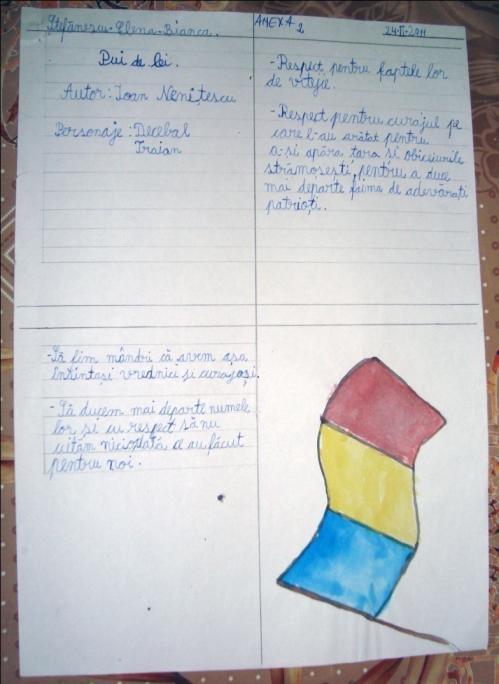 Ștefănescu Elena-Bianca.
ANEXA 2
24-II-2011
Pui de lei.
Autor: Ioan Nenițescu
Personaje: Decebal
Traian
-Respect pentru faptele lor
de vitejie.
-Respect pentru curajul pe
care l-au arătat pentru
a-și apăra țara și obiceiurile
strămoșești, pentru a duce
mai departe faima de adevărați
patrioți.
-Să fim mândri că avem așa
înaintași vrednici și curajoși.
-Să ducem mai departe numele
lor și cu respect să nu
uităm niciodată ce au făcut
pentru noi.